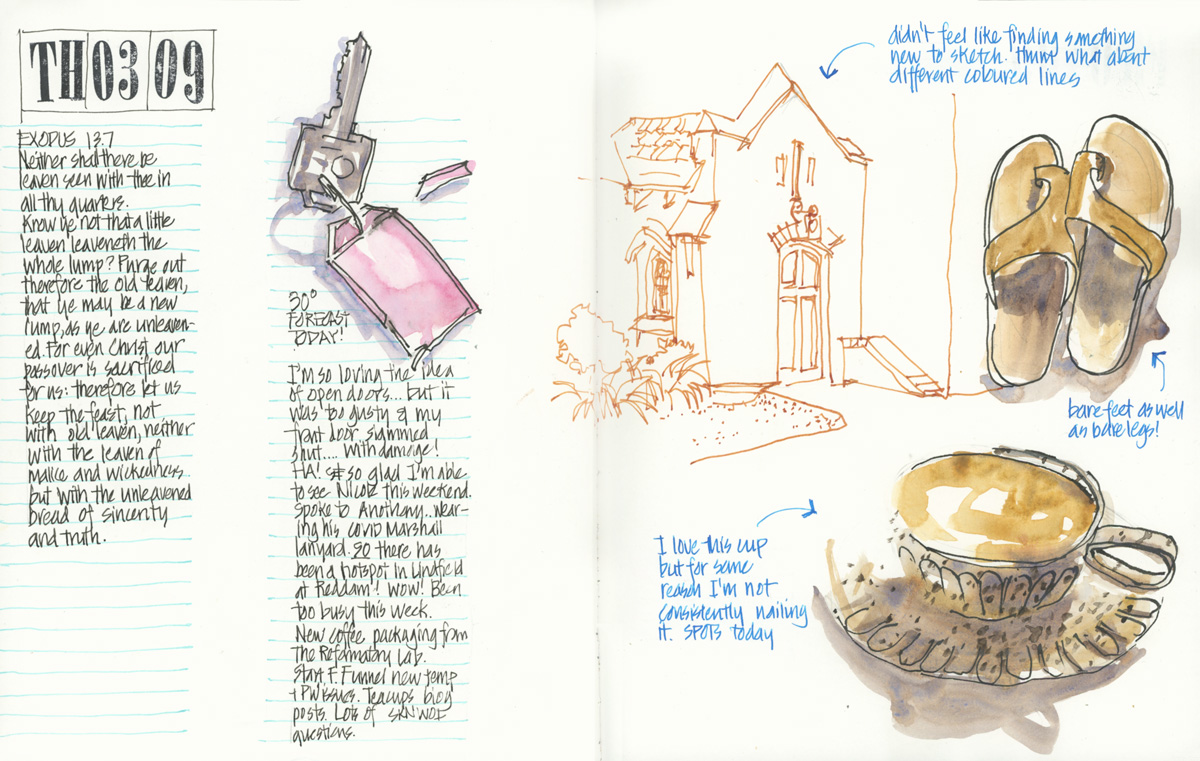 TH 03 09
EXODUS 13:7
Neither shall there be
leaven seen with thee in
all thy quarters.
Know ye not that a little
leaven leaveneth the
whole lump? Purge out
therefore the old leaven,
that ye may be a new
lump, as ye are unleaven-
ed. For even Christ our
passover is sacrificed
for us: therefore let us
keep the feast, not
with old leaven, neither
with the leaven of
malice and wickedness.
but with the unleavened
bread of sincerity
and truth.
30°
FORECAST
TODAY!
I'm so loving the idea
of open doors... but it
was too gusty & my
front door slammed
shut.... with damage!
HA! so glad I'm able
to see Nicole this weekend.
Spoke to Anothony.. wear-
ing his covid Marshall
lanyard. 20 there has
been a hotspot in Lindfield
at Reddam! Wow! Been
too busy this week.
New coffee packaging from
The Reformatory Lab.
Start F. Funnel new temp
+ PW issues. Teacups blog
posts. Lots of SKNWOF
questions.
didn't feel like finding something
new to sketch. Hmmm what about
different coloured lines
bare feet as well
as bare legs!
I love this cup
but for some
reason I'm not
consistently nailing
it. SPOTS today